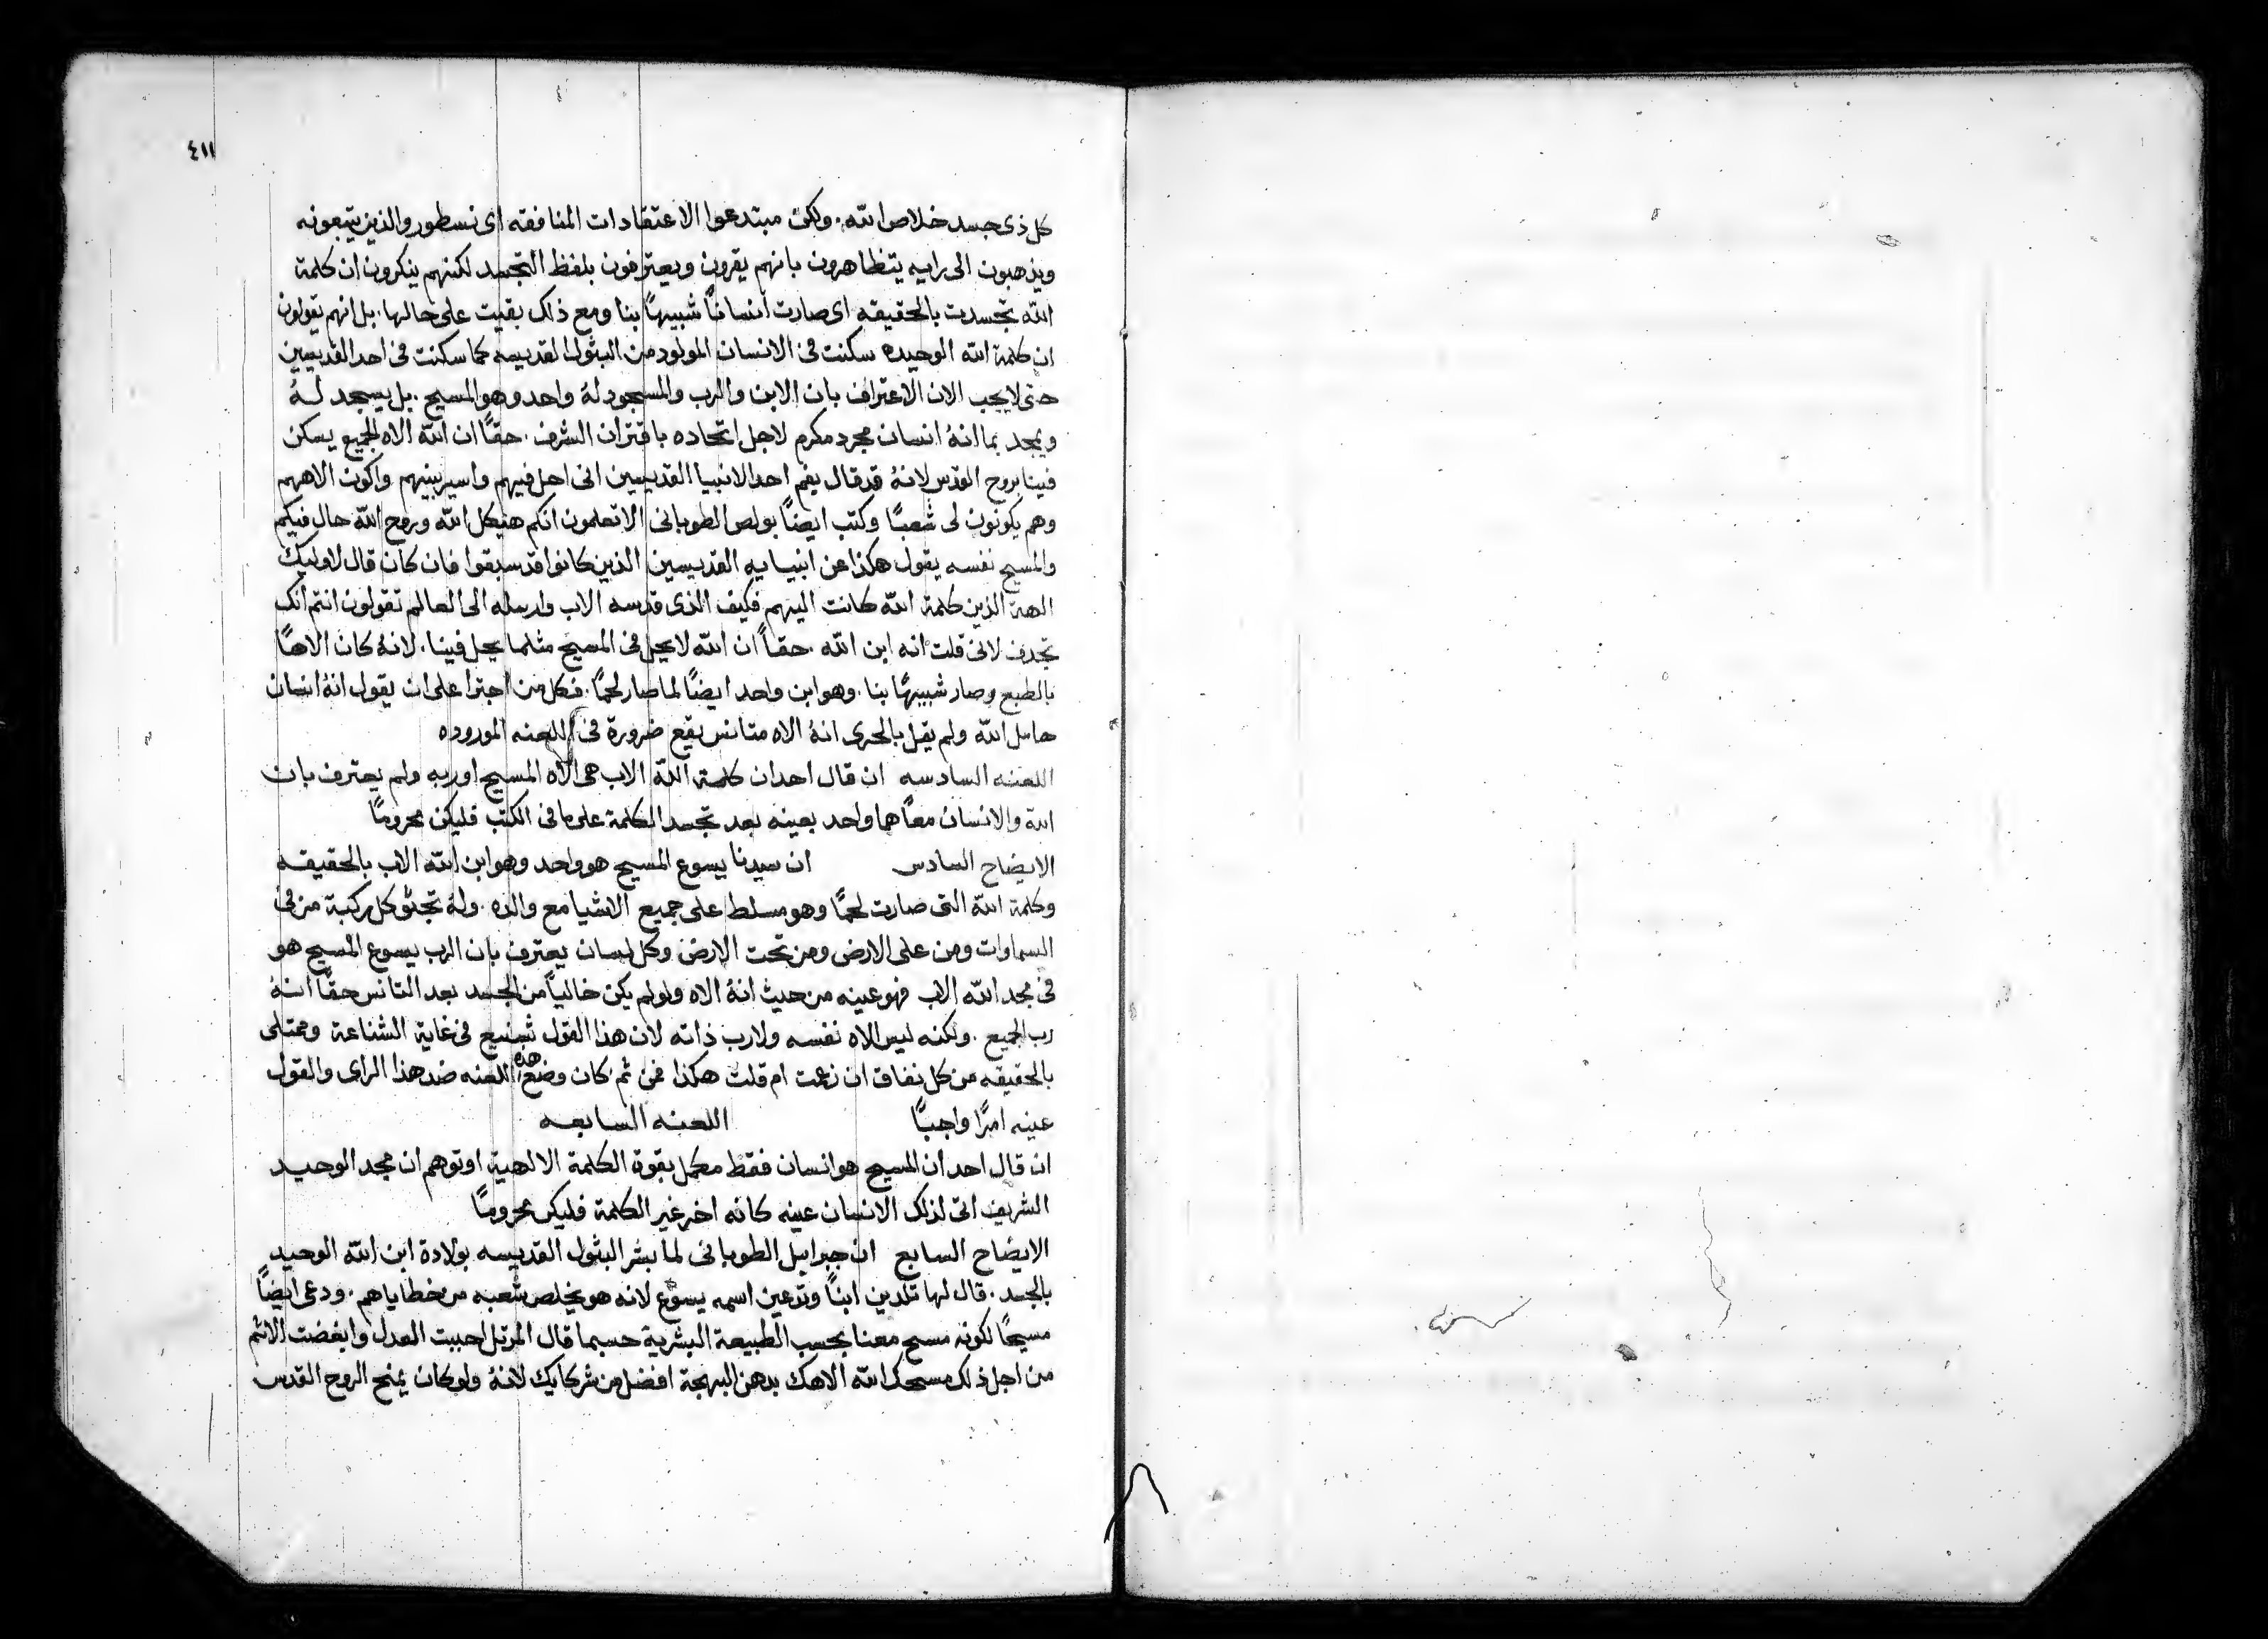 ٤١١
كل ذى جسد خلاص الله. ولكن مبتدعوا الاعتقادات المنافقه اى نسطور والذين يتبعونه
ويذهبون الى رايه يتظاهرون بانهم يقرون ويعترفون بلفظ التجسد لكنهم ينكرون ان كلمة
الله تجسدت بالحقيقه اى صارت انسانًا شبيهًا بنا ومع ذلك بقيت على حالها. بل انهم يقولون
ان كلمة الله الوحيده سكنت فى الانسان المولود من البثول القديسه كما سكنت فى احد القديسين
حتى لا يجب الان الاعتراف بان الابن والرب والمسجود لهُ واحد وهو المسيح. بل يسجد لهُ
ويمجد بما انهُ انسان مجرد مكرم لاجل اتحاده باقتران الشرف. حقًا ان الله الاه الجميع يسكن
فينا بروح القدس لانهُ قد قال بفم احد الانبيا القديسين انى احل فيهم واسير بينهم واكون الاههم
وهم يكونون لى شعبًا وكتب ايضًا بولص الطوبانى الا تعلمون انكم هيكل الله وروح الله حال فيكم
والمسيح نفسه يقول هكذا عن انبيايه القديسين الذين كانوا قد سبقوا فان كان قال لاوليك
الهة الذين كلمة الله كانت اليهم فكيف الذى قدسه الاب وارسله الى العالم تقولون انتم انك
تجدف لانى قلت انه ابن الله. حقًا ان الله لا يحل فى المسيح مثلما يحل فينا. لانهُ كان الاهًا
بالطبع وصار شبيهًا بنا. وهو ابن واحد ايضًا لما صار لحمًا. فكل من اجترا على ان يقول انهُ انسان
حامل الله ولم يقل بالحرى انهُ الاه متانس يقع ضرورة فى اللعنه الموروده
اللعنه السادسه ان قال احد ان كلمة الله الاب هى الاه المسيح او ربه ولم يعترف بان
الله والانسان معًا هما واحد بعينه بعد تجسد الكلمة على ما فى الكتب فليكن محرومًا
الايضاح السادس ان سيدنا يسوع المسيح هو واحد وهو ابن الله الاب بالحقيقه
وكلمة الله التى صارت لحمًا وهو مسلط على جميع الاشيا مع والده. ولهُ تجثو كل ركبة من فى
السماوات ومن على الارض ومن تحت الارض وكل لسان يعترف بان الرب يسوع المسيح هو
فى مجد الله الاب فهو عينه من حيث انهُ الاه ولو لم يكن خاليًا من الجسد بعد التانس حقًا انهُ
رب الجميع. ولكنه ليس الاه نفسه ولا رب ذاته لان هذا القول شنيع فى غاية الشناعة وممتلى
بالحقيقه من كل نفاق ان زعمت ام قلت هكذا فمن ثم كان وضع هذه اللعنه ضد هذا الراى والقول
عينه امرًا واجبًا اللعنه السابعه
ان قال احد ان المسيح هو انسان فقط مكمل بقوة الكلمة الالهية او توهم ان مجد الوحيد
الشريف اتى لذلك الانسان عينه كانه اخر غير الكلمة فليكن محرومًا
الايضاح السابع ان جبراييل الطوبانى لما بشر البثول القديسه بولادة ابن الله الوحيد
بالجسد. قال لها تلدين ابنًا وتدعين اسمه يسوع لانه هو يخلص شعبه من خطاياهم. ودعى ايضًا
مسيحًا لكونه مسح معنا بحسب الطبيعة البشرية حسبما قال المرتل احببت العدل وابغضت الاثم
من اجل ذلك مسحك الله الاهك بدهن البهجة افضل من شركايك لانهُ ولو كان يمنح الروح القدس